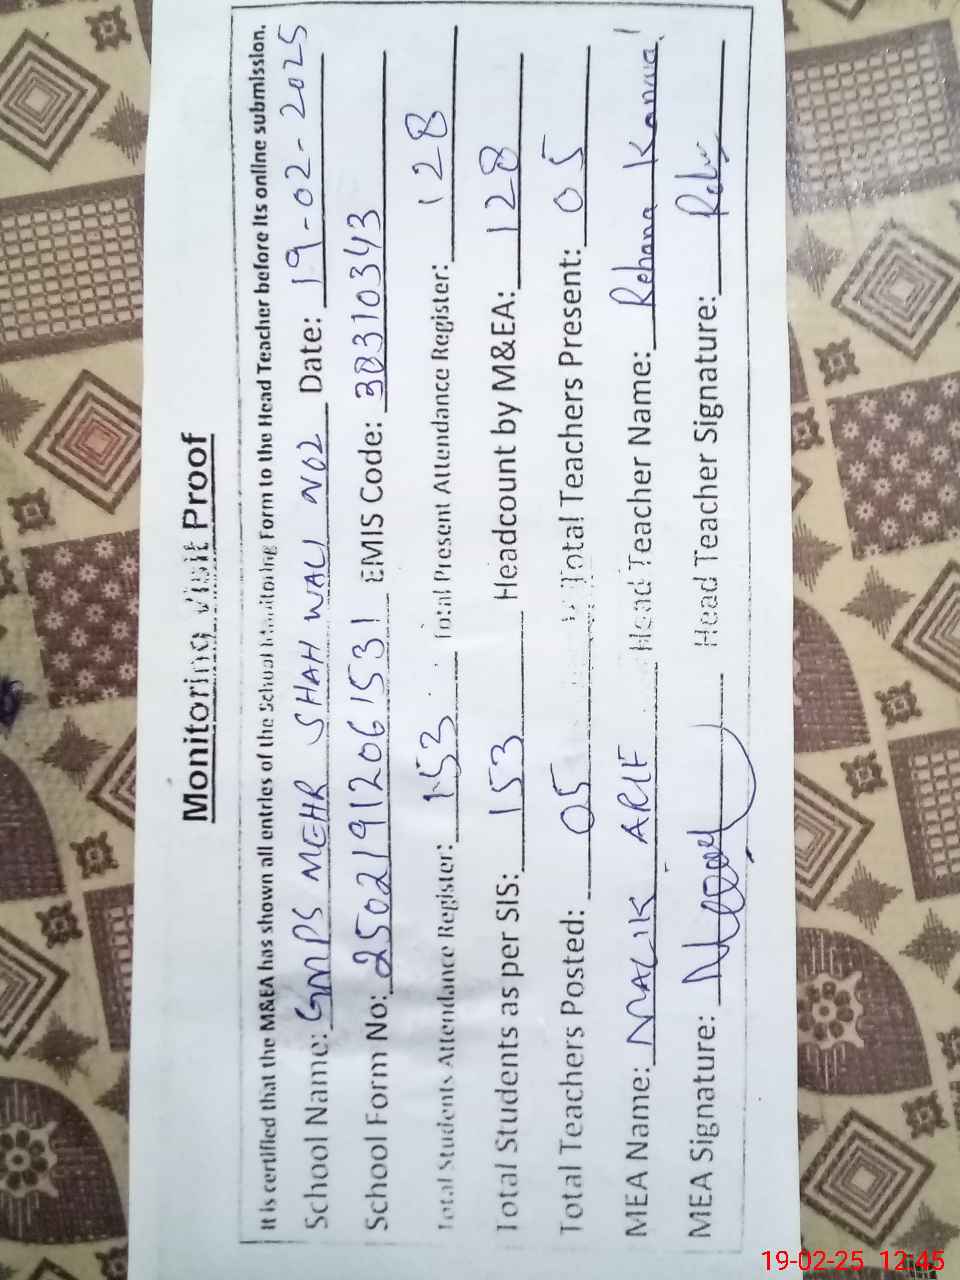 Monitoring Visit Proof
It is certified that the M&EA has shown all entries of the School Monitoring Form to the Head Teacher before its online submission.
School Name: GMPS MEHR SHAH WALI NO2 Date: 19-02-2025
School Form No: 25021912061531 EMIS Code: 38310343
Total Students Attendance Register: 153 Total Present Attendance Register: 128
Total Students as per SIS: 153 Headcount by M&EA: 128
Total Teachers Posted: 05 Total Teachers Present: 05
MEA Name: MALIK ARIF Head Teacher Name: Rehana Kanwal
MEA Signature: Head Teacher Signature:
19-02-25 12:45